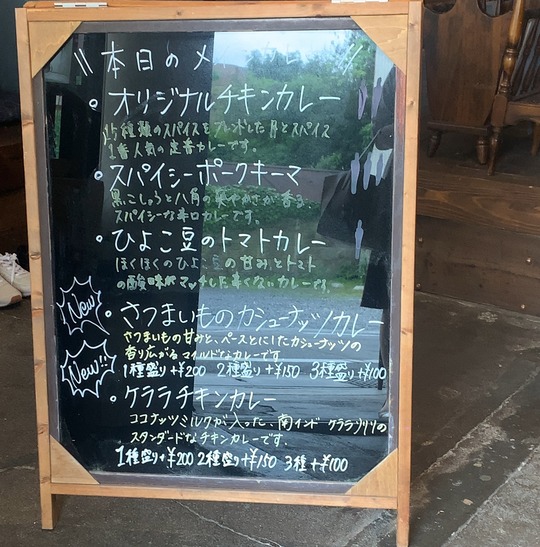 本日のメ
・オリジナルチキンカレー
15種類のスパイスをブレンドした
1番人気の定番カレーです。
・スパイシーポークキーマ
黒こしょうと八角の爽やかさが香る
スパイシーな辛口カレーです。
・ひよこ豆のトマトカレー
ほくほくのひよこ豆の甘みとトマト
の酸味がマッチした辛くないカレーです。
New
・さつまいものカシューナッツカレー
さつまいもの甘みと、ペーストにしたカシューナッツの
香り広がるマイルドなカレーです
1種盛り+¥200 2種盛り+¥150 3種盛り+¥100
New!!
・ケララチキンカレー
ココナッツミルクが入った、南インド ケララ
スタンダードなチキンカレーです。
1種盛り+¥200 2種盛り+¥150 3種+¥100